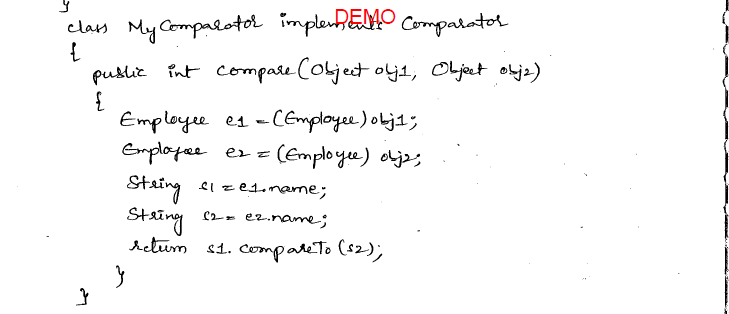 }
class MyComparator implements Comparator
DEMO
{
public int compare(Object obj1, Object obj2)
{
Employee e1 = (Employee) obj1;
Employee e2 = (Employee) obj2;
String s1 = e1.name;
String s2 = e2.name;
return s1.compareTo(s2);
}
}